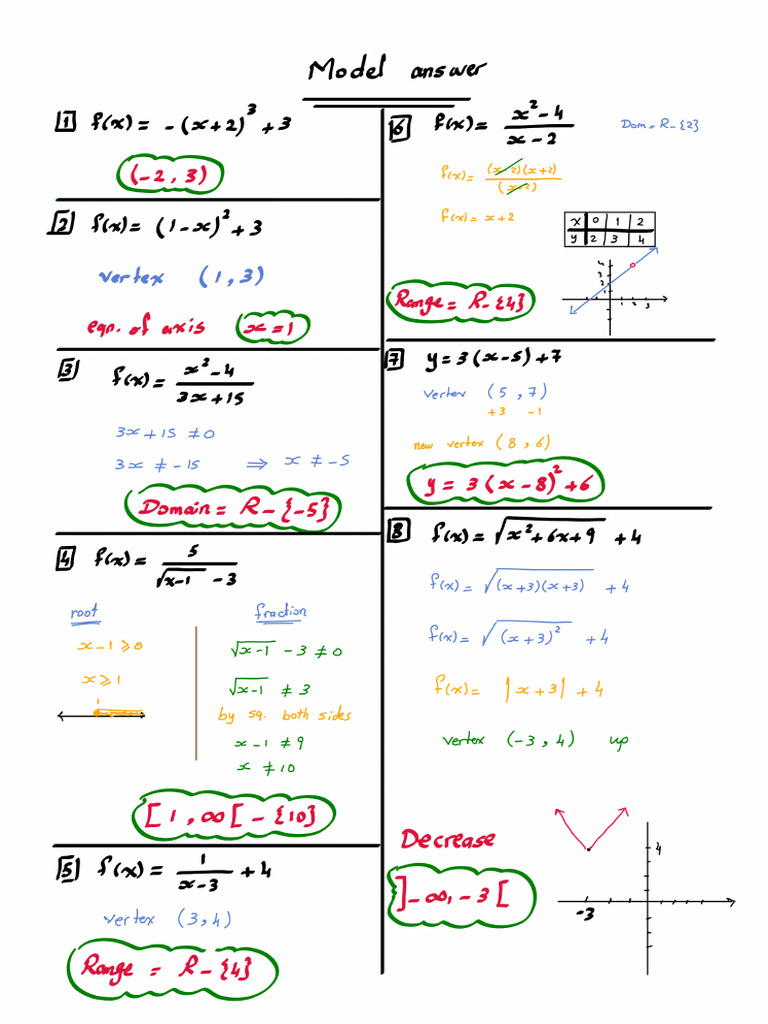 Model answer
1 f(x) = -(x+2)³ + 3
(-2, 3)
2 f(x) = (1-x)² + 3
vertex (1, 3)
eqn. of axis x = 1
3 f(x) = x² - 4 / 3x + 15
3x + 15 ≠ 0
3x ≠ -15 ⇒ x ≠ -5
Domain = R - {-5}
4 f(x) = 5 / √x-1 - 3
root
x - 1 ≥ 0
x ≥ 1
1
fraction
√x-1 - 3 ≠ 0
√x-1 ≠ 3
by sq. both sides
x - 1 ≠ 9
x ≠ 10
[1, ∞[ - {10}
5 f(x) = 1 / x-3 + 4
vertex (3, 4)
Range = R - {4}
6 f(x) = x² - 4 / x - 2 Dom = R - {2}
f(x) = (x-2)(x+2) / (x-2)
f(x) = x + 2
x 0 1 2
y 2 3 4
1 2 3
Range = R - {4}
7 y = 3(x-5) + 7
vertex (5, 7)
+3 -1
new vertex (8, 6)
y = 3(x-8)² + 6
8 f(x) = √x² + 6x + 9 + 4
f(x) = √(x+3)(x+3) + 4
f(x) = √(x+3)² + 4
f(x) = |x+3| + 4
vertex (-3, 4) up
Decrease
]-∞, -3[
4
-3